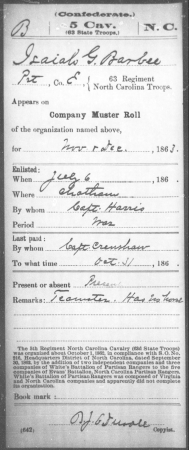 (Confederate.)
B 5 Cav. N. C.
(63 State Troops.)
Isaiah G. Barbee
Pvt, Co. E, 63 Regiment
North Carolina Troops.
Appears on
Company Muster Roll
of the organization named above,
for Nov & Dec, 1863.
Enlisted:
When July 6, 186
Where Chatham
By whom Capt. Harris
Period War
Last paid:
By whom Capt. Crenshaw
To what time Oct. 31, 186
Present or absent
Remarks: Teamster. Has no horse
The 5th Regiment North Carolina Cavalry (63d State Troops)
was organized about October 1, 1862, in compliance with S. O. No.
Headquarters District of North Carolina, dated September
30, 1862, by the addition of two independent companies and three
companies of White's Battalion of Partisan Rangers to the five
companies of Evans' Battalion, North Carolina Partisan Rangers.
White's Battalion Partisan Rangers was composed of Virginia
and North Carolina companies and apparently did not complete
its organization.
Book mark:
(642) Copyist.